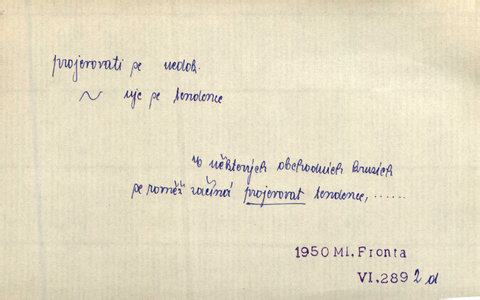 projevovati se nedok.
~ uje se tendence
v některých obchodních kruzích
se rovněž začíná projevovat tendence, ......
1950 Ml. Fronta
VI, 289 2 d